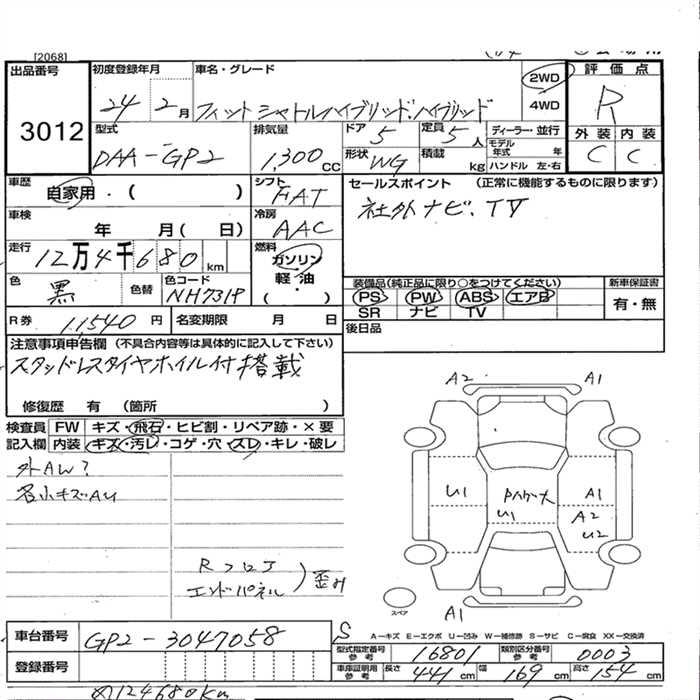 [2068]
出品番号
3012
初度登録年月
24年2月
車名・グレード
フィットシャトルハイブリッド.ハイブリッド
2WD
4WD
評価点
R
外装 内装
C C
型式
DAA-GP2
排気量
1,300 CC
ドア 5
定員 5人
形状 WG
積載 kg
ディーラー・並行
モデル年式 年
ハンドル 左・右
車歴
自家用・( )
シフト
FAT
セールスポイント (正常に機能するものに限ります)
社外ナビ、TV
車検
年 月( 日)
冷房
AAC
走行
12万4千680km
燃料
ガソリン
軽油
( ・ )
色
黒
色替
色コード
NH731P
装備品(純正品に限り○をつけてください)
PS PW ABS エアB
SR ナビ TV
新車保証書
有・無
R券 11,540円
名変期限 月 日
後日品
注意事項申告欄(不具合内容等は具体的に記入して下さい)
スタッドレスタイヤホイル付搭載
修復歴 有 (箇所 )
検査員記入欄
FW キズ・飛石・ヒビ割・リペア跡・×要
内装 キズ・汚レ・コゲ・穴・スレ・キレ・破レ
外AW?
各小キズAU
Rフロア
エンドパネル
歪み
A2 A1
U1
Pハゲ大
U1
A1
A2
U2
A1
スペア
S
A-キズ E-エクボ U-凹み W-補修跡 S-サビ C-腐食 XX-交換済
車台番号 GP2-3047058
登録番号
型式指定番号参考 16801
類別区分番号参考 0003
車庫証明用参考 長さ 441cm 幅 169cm 高さ 154cm
124680km